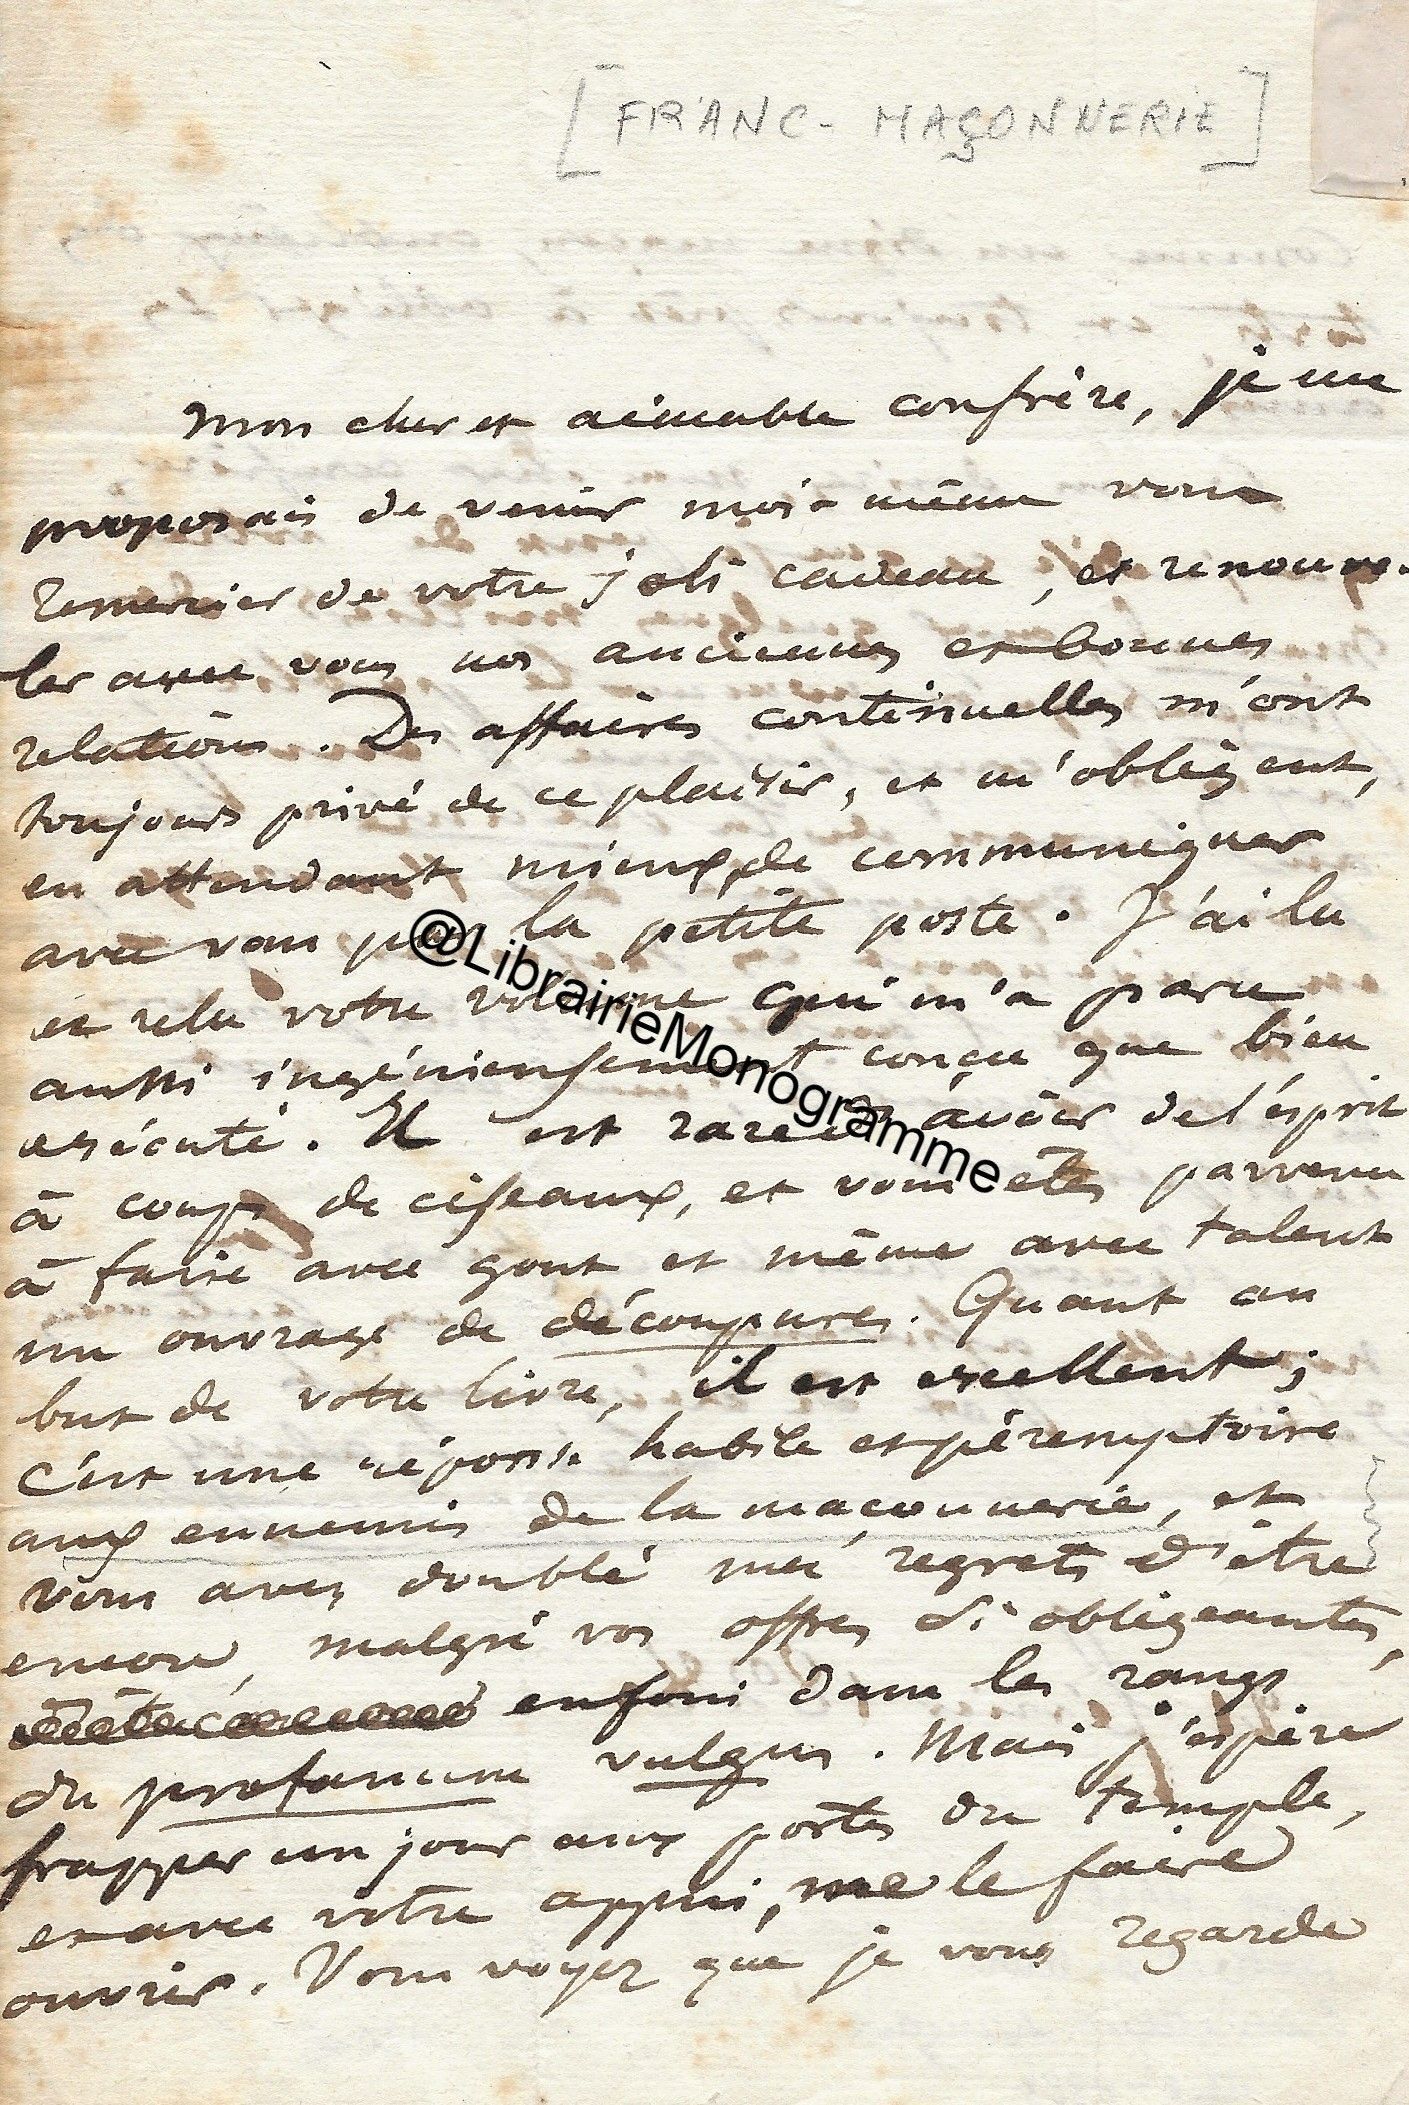 [FRANC-MAÇONNERIE]
Mon cher et aimable confrère, je me
proposais de venir moi-même vous
remercier de votre joli cadeau, et renouve-
ler avec vous nos anciennes et bonnes
relations. Des affaires continuelles m'ont
toujours privé de ce plaisir, et m'obligent,
en attendant mieux, de communiquer
avec vous par la petite poste. J'ai lu
et relu votre volume qui m'a paru
aussi ingénieusement conçu que bien
exécuté. Il est rare d'avoir de l'esprit
à coups de ciseaux, et vous etes parvenu
à faire avec gout et même avec talent
un ouvrage de découpures. Quant au
but de votre livre, il est excellent;
c'est une réponse habile et péremptoire
aux ennemis de la maçonnerie, et
vous avez doublé mes regrets d'être
encore, malgré vos offres si obligeantes,
enfoui dans les rangs
du profanum vulgus. Mais j'espère
frapper un jour aux portes du temple,
et avec votre appui, me le faire
ouvrir. Vous voyez que je vous regarde
@LibrairieMonogramme